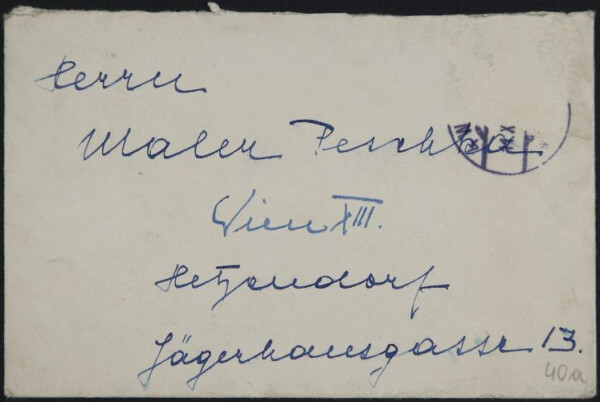 Herrn
Maler Peschka
Wien XIII.
Hetzendorf
Jägerhausgasse 13.
40a